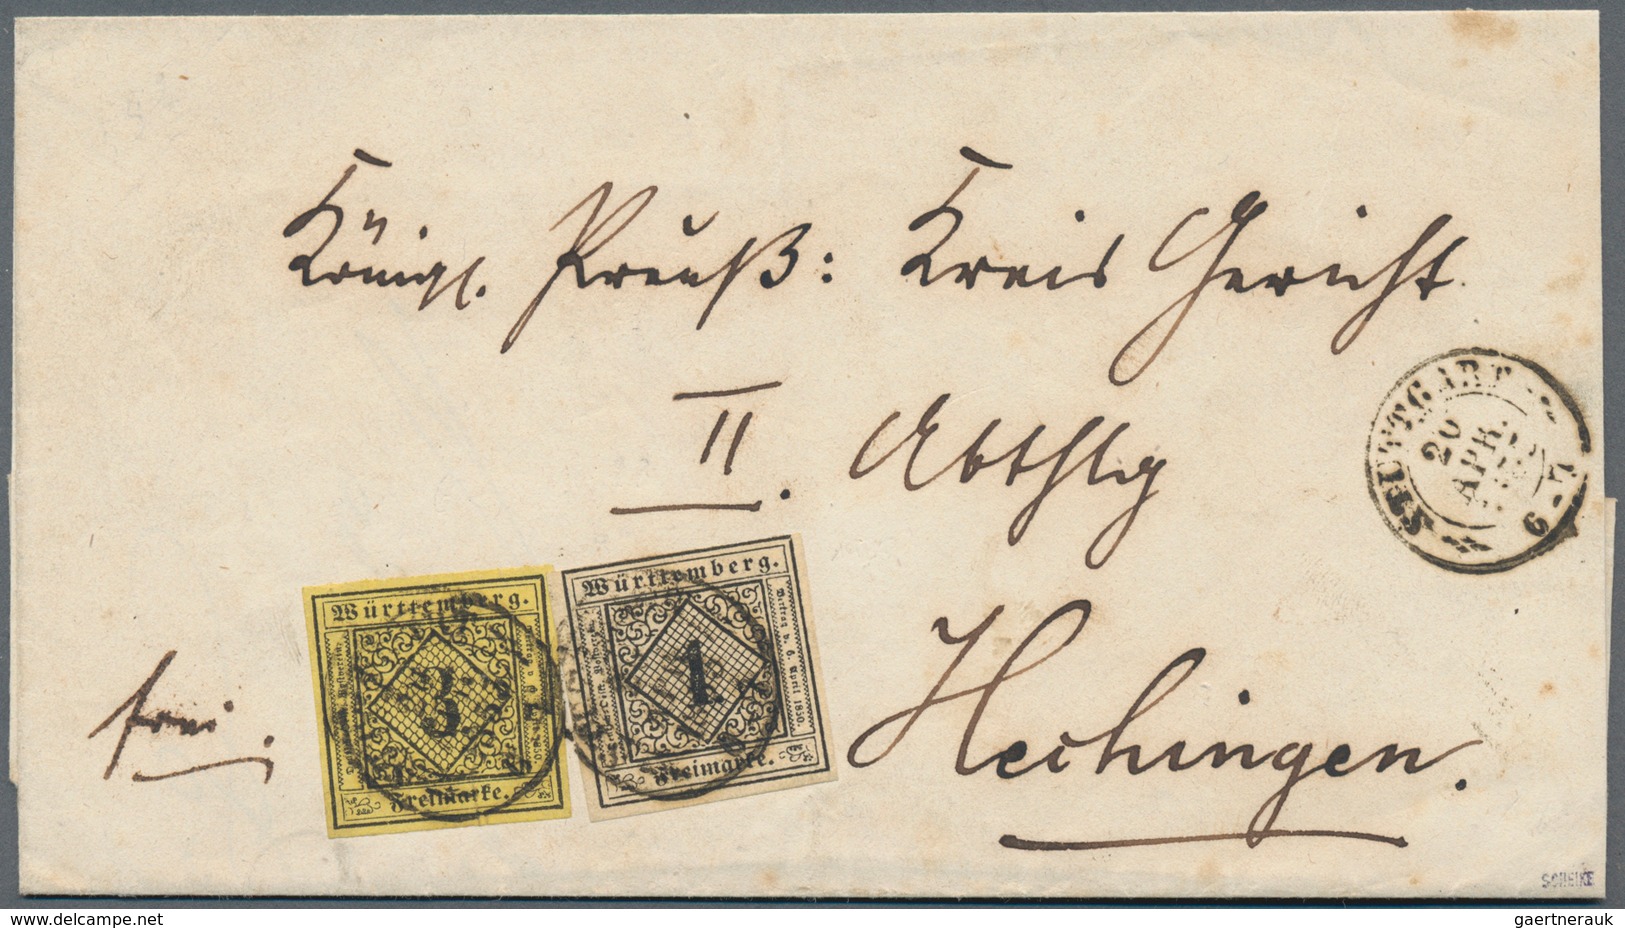 Königl. Preuß: Kreis Gericht
II. Abthlg
Hechingen.
frei.
STUTTGART
20
APR.
6-7
Württemberg.
3
Freimarke.
Württemberg.
1
Vertrag v. 6. April 1850.
Freimarke.
SCHEIKE
delcampe.net
gaertnerauk